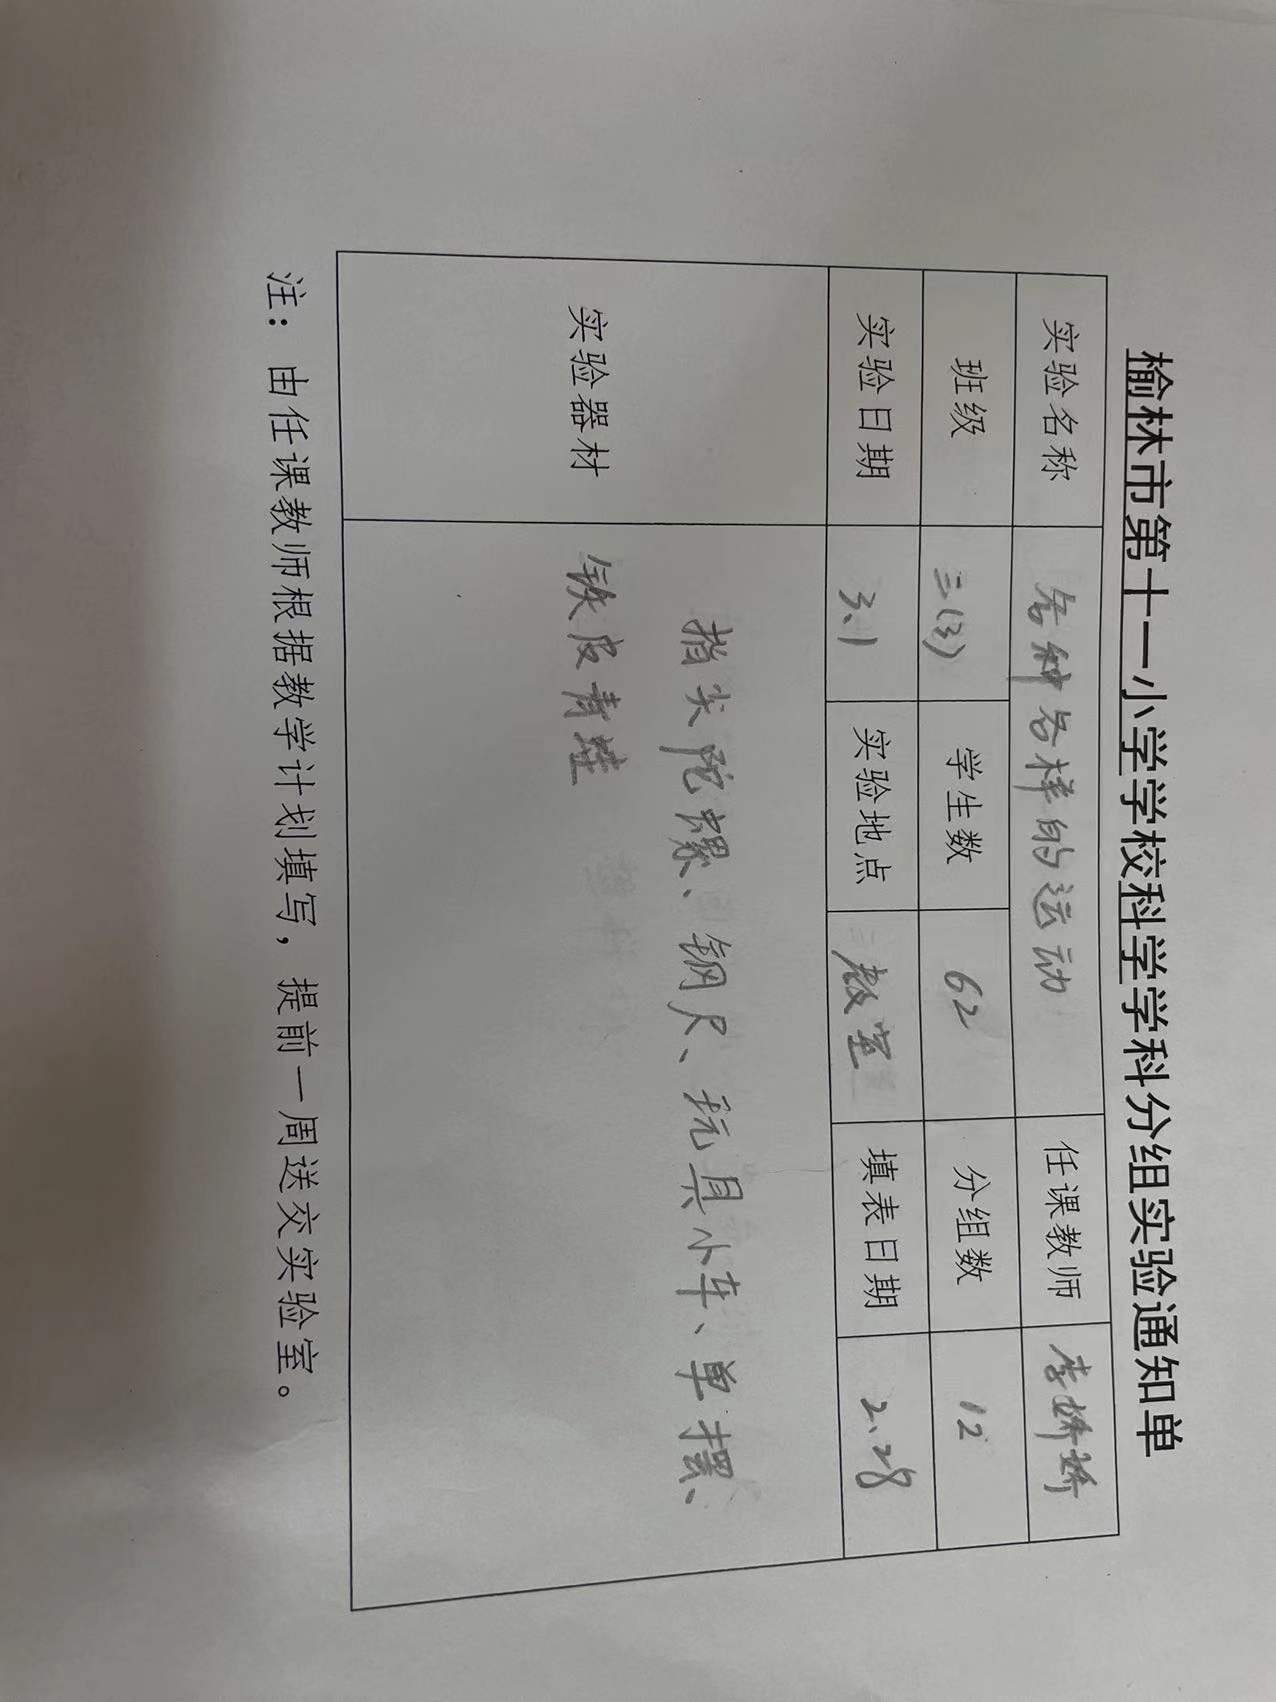 榆林市第十一小学学校科学学科分组实验通知单
实验名称 各种各样的运动 任课教师 李娇娇
班级 三(3) 学生数 62 分组数 12
实验日期 3.1 实验地点 教室 填表日期 2.28
实验器材
指尖陀螺、钢尺、玩具小车、单摆、
铁皮青蛙
注：由任课教师根据教学计划填写，提前一周送交实验室。